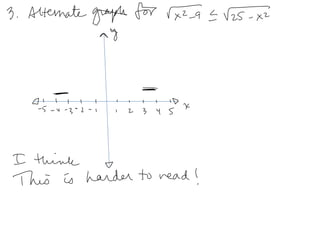 3. Alternate graph for √x²-9 ≤ √25-x²
y
-5 -4 -3 -2 -1 1 2 3 4 5 x
I think
This is harder to read!